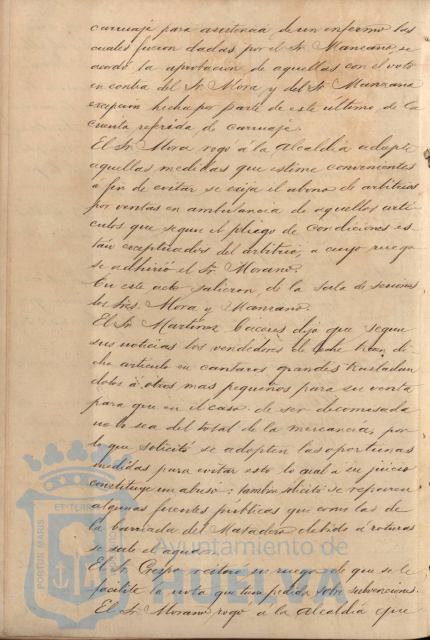 carruaje para asistencia de un enfermo las
cuales fueron dadas por el Sr. Manzano se
acordó la aprobacion de aquellas con el voto
en contra del Sr. Mora y del Sr. Manzano
excepcion hecha por parte de este ultimo de la
cuenta referida de carruaje.
El Sr. Mora rogó á la Alcaldia adopte
aquellas medidas que estime convenientes
a fin de evitar se exija el abono de arbitrios
por ventas en ambulancia de aquellos artí-
culos que segun el pliego de condiciones es-
tán exceptuados del arbitrio, a cuyo ruego
se adhirió el Sr. Morano.
En este acto salieron de la Sala de sesiones
los Sres. Mora y Manzano.
El Sr. Martinez Caceres dijo que segun
sus noticias los vendedores de leche traen di-
cho articulo en cantaros grandes trasladan-
dolos á otros mas pequeños para su venta
para que en el caso de ser decomisada
no lo sea del total de la mercancia, por
lo que solicitó se adopten las oportunas
medidas para evitar esto lo cual a su juicio
constituye un abuso: tambien solicitó se reparen
algunas fuentes publicas que como las de
la barriada del Matadero debido a roturas
se sale el agua.
El Sr. Crespo reiteró su ruego de que se le
facilite la nota que tiene pedida sobre subvenciones.
El Sr. Morano rogó a la Alcaldia que
PORTUS MARIS ET TERRAE
Ayuntamiento de
HUELVA